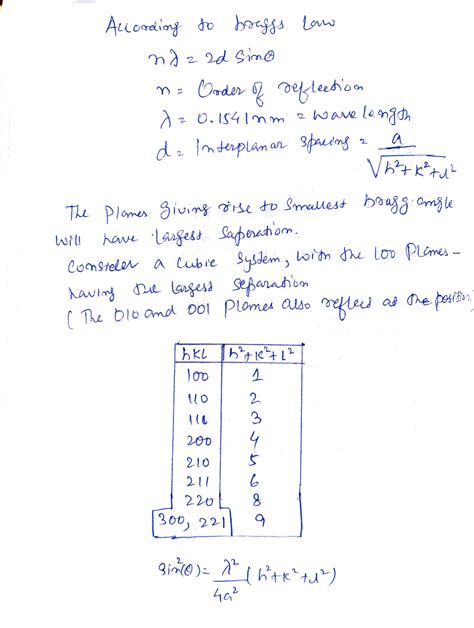 According to braggs Law
nλ = 2d Sinθ
n = Order of reflection
λ = 0.1541nm = wave length
d = Interplanar spacing = a / √h²+k²+l²
The Planes giving rise to smallest bragg-angle
will have largest Saperation.
Consider a cubic system, with the 100 Planes-
having the largest separation
( The 010 and 001 Planes also reflect at the position
hKL h²+k²+l²
100 1
110 2
111 3
200 4
210 5
211 6
220 8
300, 221 9
sin²(θ) = λ²/4a² (h²+k²+l²)